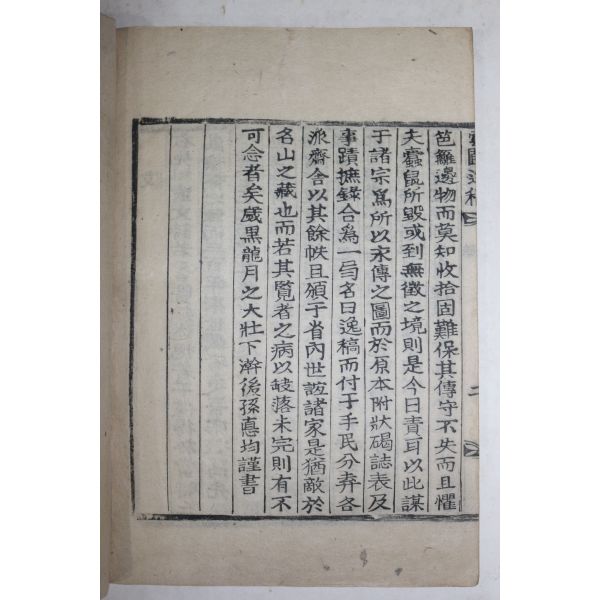 逸稿
笆籬邊物而莫知收拾固難保其傳守不失而且懼
夫蠹鼠所毁或到無徵之境則是今日責耳以此謀
于諸宗爲所以永傳之圖而於原本附狀碣誌表及
事蹟摭錄合爲一局名曰逸稿而付于手民分弆各
派齋舍以其餘帙且頒于省內世誼諸家是猶敵於
名山之藏也而若其覽者之病以峻落未完則有不
可念者矣歲黒龍月之大壯下澣後孫悳均謹書
二